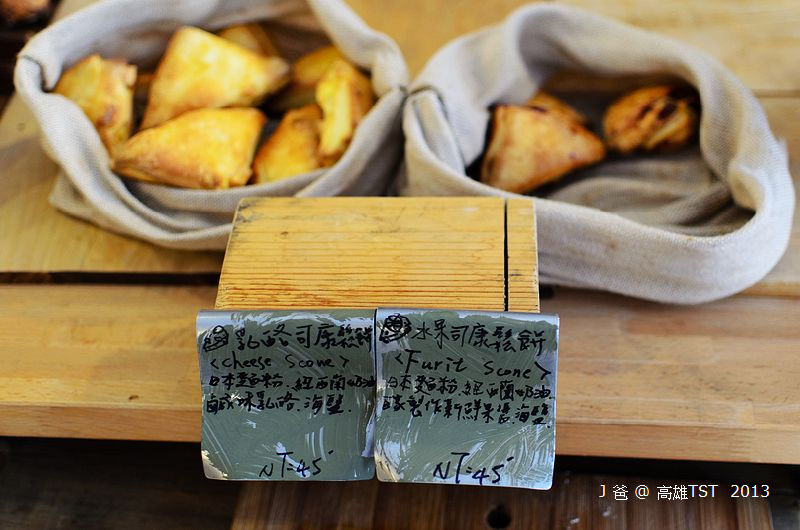 乳酪司康鬆餅
<cheese scone>
日本麵粉.紐西蘭奶油
鹹味乳酪.海鹽.
NT=45-
水果司康鬆餅
<Furit scone>
日本麵粉.紐西蘭奶油.
自家製作新鮮果醬.海鹽.
NT=45-
J 爸 @ 高雄TST 2013